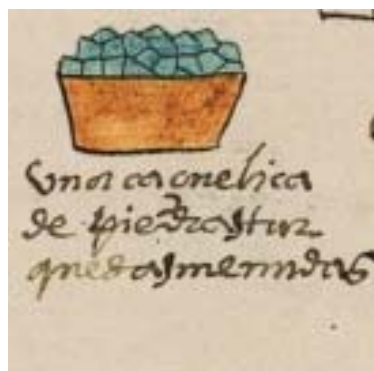 vna caçuelica
de piedras tur
quesas menudas